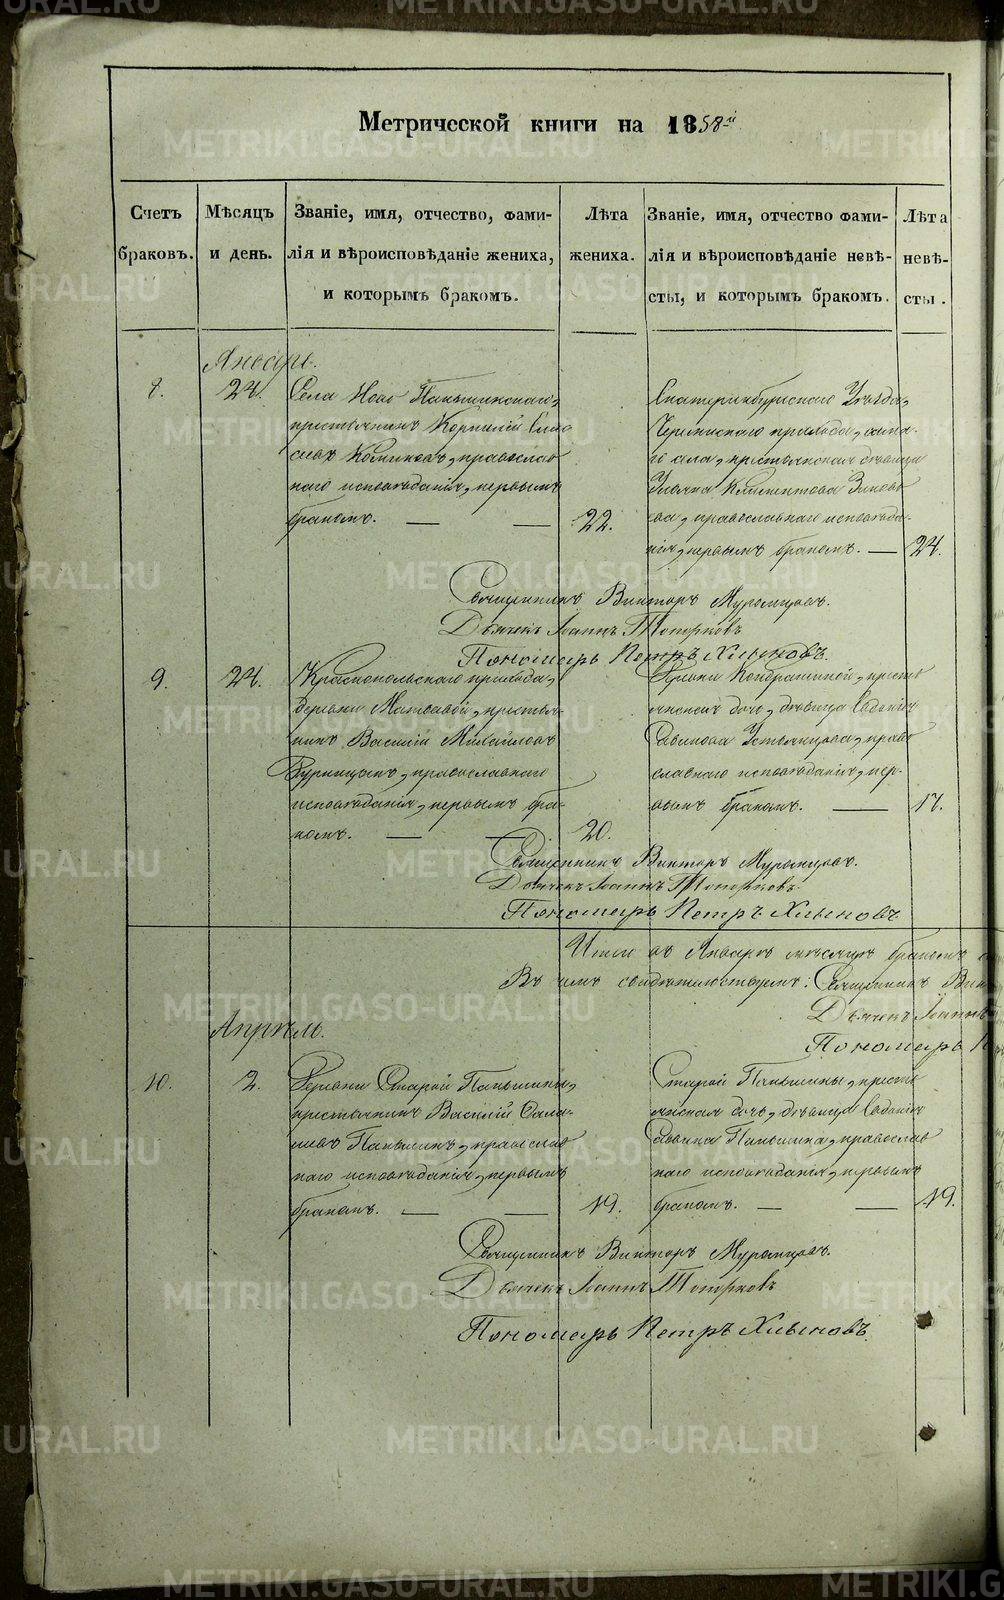 Метрической книги на 1858-й
Счетъ браковъ.
Мѣсяцъ и день.
Званіе, имя, отчество, фами-
лія и вѣроисповѣданіе жениха,
и которымъ бракомъ.
Лѣта жениха.
Званіе, имя, отчество фами-
лія и вѣроисповѣданіе невѣ-
сты, и которымъ бракомъ.
Лѣта невѣ-
сты.
Январь.
8.
24.
Села Ново Паньшинскаго,
крестьянинъ Корнилій
православ
наго исповѣданія, первымъ
бракомъ.
22.
Екатеринбургскаго Уѣзда,
прихода, сама-
го села, крестьянская дѣвица
Ульяна Климентова
ва, православнаго исповѣда-
нія, первымъ бракомъ.
24.
Священникъ Викторъ Муромцовъ.
Дьячекъ Іоаннъ Топорковъ
Пономарь Петръ Хлыновъ.
9.
24.
Краснопольскаго прихода,
деревни Матвѣевой, крестья-
нинъ Василій Михайловъ
православнаго
исповѣданія, первымъ бра-
комъ.
20.
Деревни Кондрашиной, кресть
янская дочь, дѣвица Евдокія
Савинова Устьянцова, право
славнаго исповѣданія, пер-
вымъ бракомъ.
17.
Священникъ Викторъ Муромцовъ.
Дьячекъ Іоаннъ Топорковъ.
Пономарь Петръ Хлыновъ
Итого въ Январѣ мѣсяцѣ браковъ
Въ чемъ свидѣтельствуемъ: Священникъ Вик
Дьячекъ Іоаннъ
Пономарь П
Апрѣль.
10.
2.
Деревни Старой Паньшины,
крестьянинъ Василій
Паньшинъ, православ
наго исповѣданія, первымъ
бракомъ.
19.
Старой Паньшины, кресть
янская дочь, дѣвица Евдокія
Паньшина, православ
наго исповѣданія, первымъ
бракомъ.
19.
Священникъ Викторъ Муромцовъ.
Дьячекъ Іоаннъ Топорковъ
Пономарь Петръ Хлыновъ.
METRIKI.GASO-URAL.RU